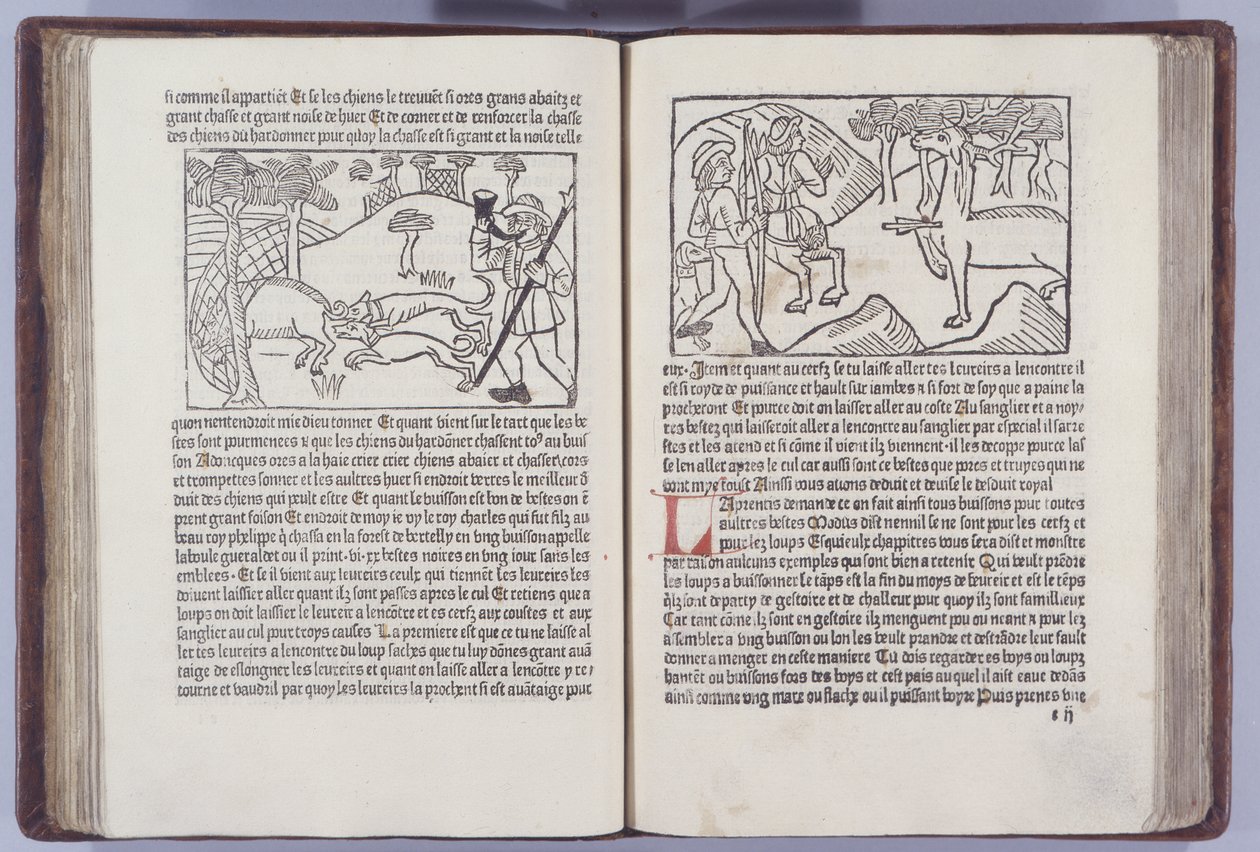 si comme il appartiēt Et se les chiens le treuuēt si ores grans abaitz et
grant chasse et grant noise de huer Et de corner et de renforcer la chasse
des chiens du hardonner pour quoy la chasse est si grant et la noise telle
quon nentendroit mie dieu tonner Et quant vient sur le tart que les be
stes sont pourmenees ⁊ que les chiens du hardōner chassent toꝰ au buis
son Adoncques ores a la haie crier crier chiens abaier et chasser cors
et trompettes sonner et les aultres huer si endroit verres le meilleur d
duit des chiens qui peult estre Et quant le buisson est bon de bestes on ē
prent grant foison Et endroit de moy ie vy le roy charles qui fut filz au
beau roy phelippe q̄ chassa en la forest de bertelly en vng buisson appelle
laboule gueraldet ou il print ·vi·xx bestes noires en vng iour sans les
emblees· Et se il vient aux leureirs ceulx qui tiennēt les leureirs les
doiuent laissier aller quant ilz sont passes apres le cul Et retiens que a
loups on doit laissier le leureir a lencōtre et es cerfz aux coustes et aux
sanglier au cul pour troys causes La premiere est que ce tu ne laisse al
ler tes leureirs a lencontre du loup saches que tu luy dōnes grant auā
taige de eslongner les leureirs et quant on laisse aller a lencōtre y re
tourne et vaudril par quoy les leureirs la prochent si est auātaige pour
eux· Item et quant au cerfz se tu laisse aller tes leureirs a lencontre il
est si royde de puissance et hault sur iambes ⁊ si fort de soy que a paine la
procheront Et pource doit on laisser aller au coste Au sanglier et a noy
res bestez qui laisseroit aller a lencontre au sanglier par especial il sarre
stes et les atend et si cōme il vient ilz viennent·il les decoppe pource las
se len aller apres le cul car aussi sont ce bestes que pores et truyes qui ne
vont mye toust Ainssi vous auons deduit et deuise le desduit royal
LAprentis demande ce on fait ainsi tous buissons pour toutes
aultres bestes Modus dist nennil se ne sont pour les cerfz et
pour lez loups Esquieulx chappitres vous sera dist et monstre
par raison aulcuns exemples qui sont bien a retenir Qui veult prēdre
les loups a buissonner le tāps est la fin du moys de feureir et est le tēps
q̄lz sont departy de gestoire et de challeur pour quoy ilz sont famillieux
Car tant cōme ilz sont en gestoire ilz menguent pou ou neant ⁊ pour lez
assembler a vng buisson ou lon les veult prandre et destrādre leur fault
donner a menger en ceste maniere Tu dois regarder es boys ou loupz
hantēt ou buissons fors des boys et cest pais auquel il aist eaue dedās
ainsi comme vng mare ou flache ou il puissant boyre Puis prenes vne
e ij